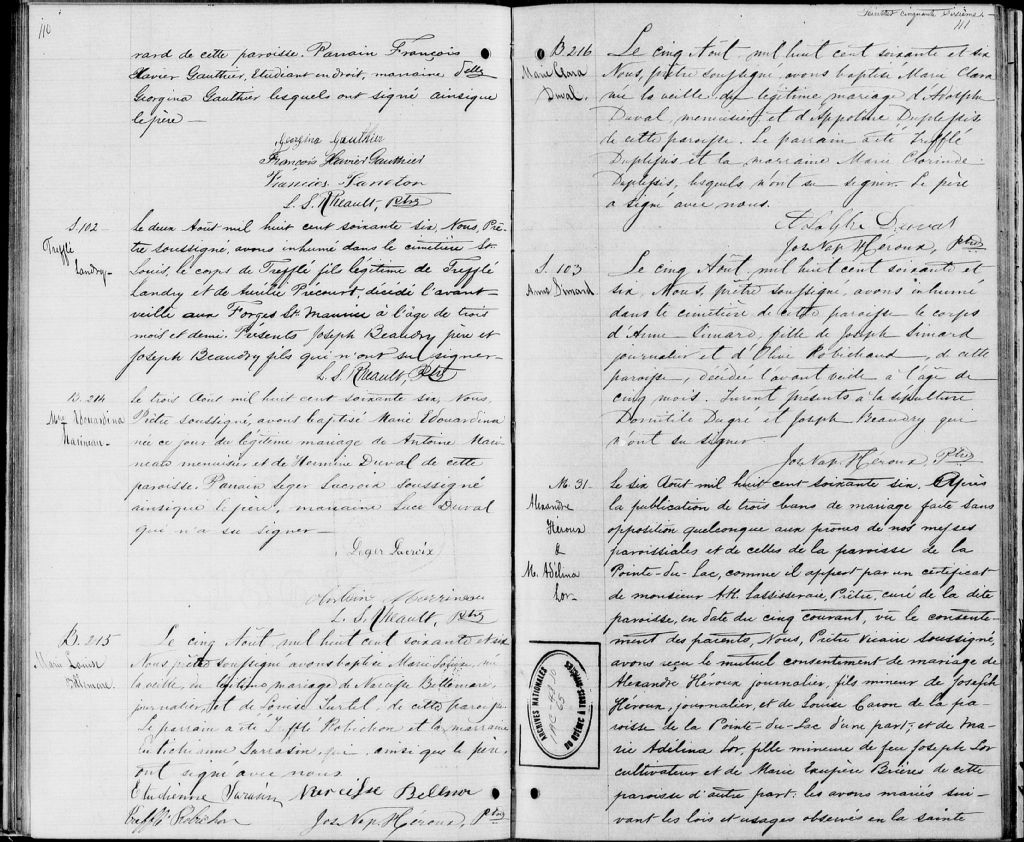 110
rard de cette paroisse. Parrain François
Xavier Gauthier, Etudiant en droit, marraine Delle
Georgina Gauthier lesquels ont signé ainsique
le père —
Georgina Gauthier
François Xavier Gauthier
L. S. Rheault, Ptre
S. 102
Trefflé
Landry
Le deux Août mil huit cent soixante six, Nous, Prê-
tre soussigné, avons inhumé dans le cimetière St.
Louis, le corps de Trefflé fils légitime de Trefflé
Landry et de Aurélie Précourt, décédé l'avant-
veille aux Forges St. Maurice à l'âge de trois
mois et demi. Présents Joseph Beaudry père et
Joseph Beaudry fils qui n'ont su signer —
L. S. Rheault, Ptre
B. 214
Mie Edouardina
Marineau
Le trois Août mil huit cent soixante six, Nous,
Prêtre soussigné, avons baptisé Marie Edouardina
née ce jour du légitime mariage de Antoine Mari-
neau menuisier et de Hermine Duval de cette
paroisse. Parrain Leger Lacroix soussigné
ainsique le père, marraine Luce Duval
qui n'a su signer —
Leger Lacroix
L. S. Rheault, Ptre
B. 215
Marie Louise
Bellemare
Le cinq Août, mil huit cent soixante et six
Nous prêtre soussigné avons baptisé Marie Louise, née
la veille, du légitime mariage de Narcisse Bellemare,
journalier, et de Louise Turtel, de cette paroisse
Le parrain a été Trefflé Robichon et la marraine
Sarrasin, qui, ainsi que le père,
ont signé avec nous.
Jos. Nap. Héroux, Ptre
Feuillet cinquante sixième
B. 216
Marie Clara
Duval.
Le cinq Août, mil huit cent soixante et six
Nous, prêtre soussigné, avons baptisé Marie Clara
née la veille du légitime mariage d'Adolphe
Duval, menuisier, et d'Appoline Duplessis
de cette paroisse. Le parrain a été Trefflé
Duplessis et la marraine Marie Clorinde
Duplessis, lesquels n'ont su signer. Le père
a signé avec nous.
Adolphe Duval
Jos. Nap. Héroux, Ptre
S. 103
Anne Simard
Le cinq Août, mil huit cent soixante et
six, Nous, prêtre soussigné, avons inhumé
dans le cimetière de cette paroisse le corps
d'Anne Simard, fille de Joseph Simard
journalier et d'Olive Robichaud, de cette
paroisse, décédée l'avant veille à l'âge de
cinq mois. Furent présents à la sépulture
Domitile Dugré et Joseph Beaudry qui
n'ont su signer
Jos. Nap. Héroux, Ptre
M. 31
Alexandre
Héroux
&
M. Adélina
Lor
Le six Août mil huit cent soixante six, Après
la publication de trois bans de mariage faite sans
opposition quelconque aux prônes de nos messes
paroissiales et de celles de la paroisse de la
Pointe-du-Lac, comme il appert par un certificat
de monsieur Prêtre, curé de la dite
paroisse, en date du cinq courant, vu le consente-
ment des parents, Nous, Prêtre Vicaire soussigné,
avons reçu le mutuel consentement de mariage de
Alexandre Héroux journalier, fils mineur de Joseph
Héroux, journalier, et de Louise Caron de la pa-
roisse de la Pointe-du-Lac d'une part; et de Ma-
rie Adelina Lor, fille mineure de feu Joseph Lor
cultivateur et de Marie Exupère Brières de cette
paroisse d'autre part: les avons mariés sui-
vant les lois et usages observés en la sainte
ARCHIVES NATIONALES
DU QUÉBEC À TROIS-RIVIÈRES